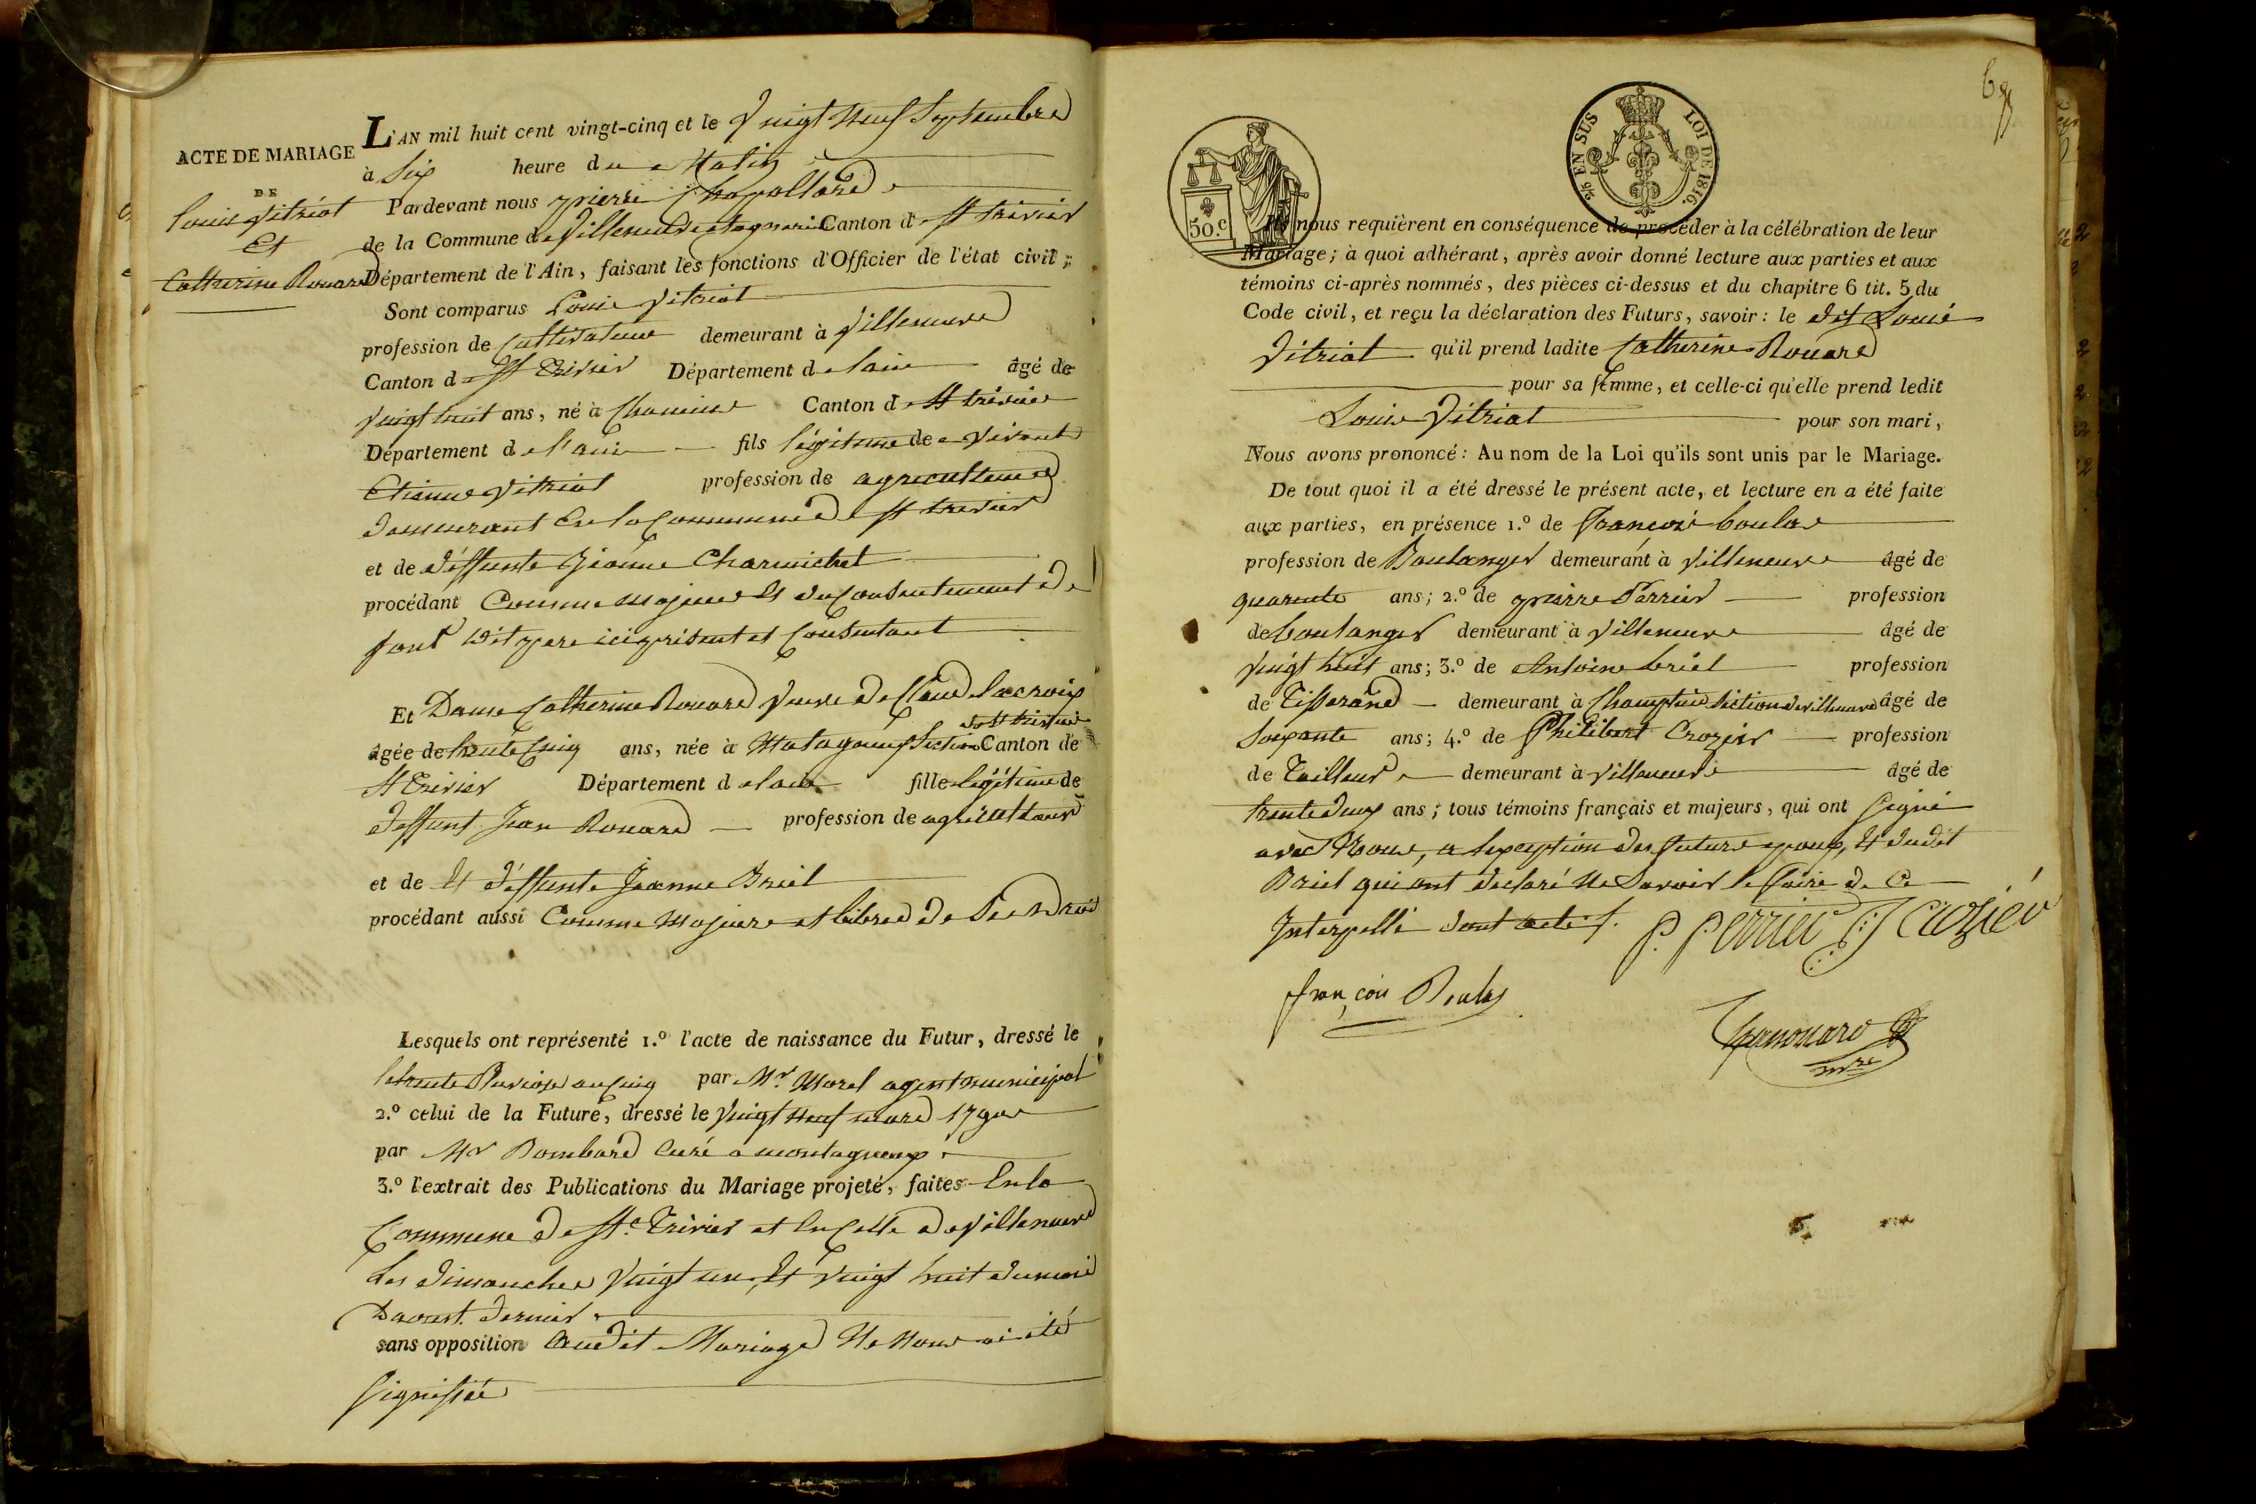 L'AN mil huit cent vingt-cinq et le Vingt Neuf Septembre
ACTE DE MARIAGE
à Six heure du Matin
DE
Louis Vitriat
Pardevant nous pierre
Et
de la Commune de Villeneuve Canton de St trivier
Catherine Rouard
Département de l'Ain, faisant les fonctions d'Officier de l'état civil;
Sont comparus Louis Vitriat
profession de Cultivateur demeurant à Villeneuve
Canton de St Trivier Département de lain âgé de
Vingt huit ans, né à Canton de St trivier
Département de l'ain fils légitime de Vivant
Etienne Vitriat profession de agriculteur
demeurant En la Commune de St trivier
et de déffunte Jéanne Charmichet
procédant Comme majeur Et du Consentement de
sont dit pere ici présent et Consentant
Et Dame Catherine Rouard Veuve de Claude Lacroix
de St trivier
âgée de trente Cinq ans, née à Section Canton de
St Trivier Département de lain fille légitime de
deffunt Jean Rouard profession de agriculteur
et de Et déffunte Jeanne Briel
procédant aussi Comme Majeure et libre de Ses droits
Lesquels ont représenté 1.º l'acte de naissance du Futur, dressé le
le trente Pluviose an Cinq par Mr Morel agent municipal
2.º celui de la Future, dressé le Vingt Neuf mars 1790
par Mr Bombard Curé a montagneux
3.º l'extrait des Publications du Mariage projeté, faites En la
Commune de St. Trivier et En Celle de Villeneuve
Les dimanches Vingt un Et Vingt huit du mois
Daoust dernier
sans opposition Audit Mariage Ne Nous ai été
Signiffiée
50.c
2/10 EN SUS LOI DE 1816.
Ils nous requièrent en conséquence de procéder à la célébration de leur
Mariage; à quoi adhérant, après avoir donné lecture aux parties et aux
témoins ci-après nommés, des pièces ci-dessus et du chapitre 6 tit. 5 du
Code civil, et reçu la déclaration des Futurs, savoir: le dit Louis
Vitriat qu'il prend ladite Catherine Rouard
pour sa femme, et celle-ci qu'elle prend ledit
Louis Vitriat pour son mari,
Nous avons prononcé: Au nom de la Loi qu'ils sont unis par le Mariage.
De tout quoi il a été dressé le présent acte, et lecture en a été faite
aux parties, en présence 1.º de François boulas
profession de Boulanger demeurant à Villeneuve âgé de
quarente ans; 2.º de pierre Perrier profession
de boulanger demeurant à Villeneuve âgé de
Vingt huit ans; 3.º de Antoine briel profession
de Tisserand demeurant à Section de villeneuve âgé de
Soixante ans; 4.º de Philibert Crozier profession
de Tailleur demeurant à Villeneuve âgé de
trente deux ans; tous témoins français et majeurs, qui ont Signé
avec Nous, a lexception des futurs epoux, Et dudit
Briel qui ont declaré Ne Savoir le faire de Ce
Interpellé dont acte
P. Perrier Crozier
françois Boulas
mre